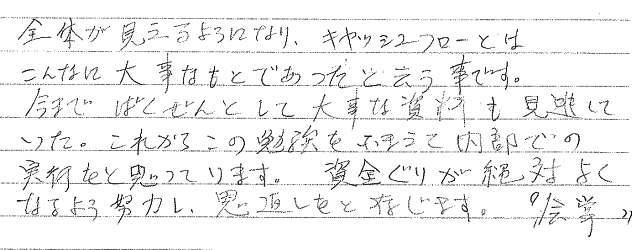 全体が見えるようになり、キャッシュフローとは
こんなに大事なもとであったと云う事です。
今まで ばくぜんとして大事な資料も見逃して
いった。これからこの勉強をふまえて内部での
実行をと思っております。 資金ぐりが絶対よく
なるよう努力し、思い返しをと存じます。